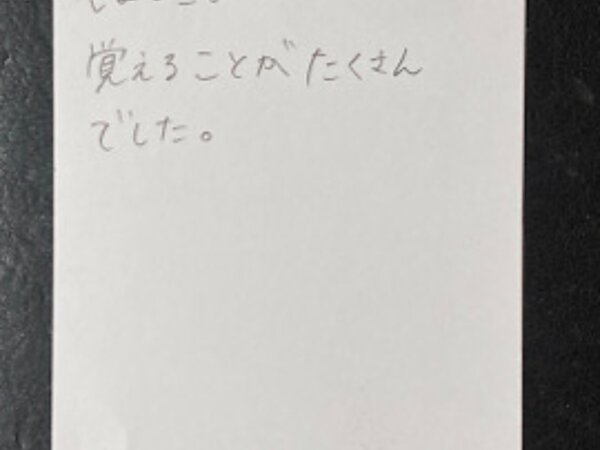 覚えることがたくさん
でした。